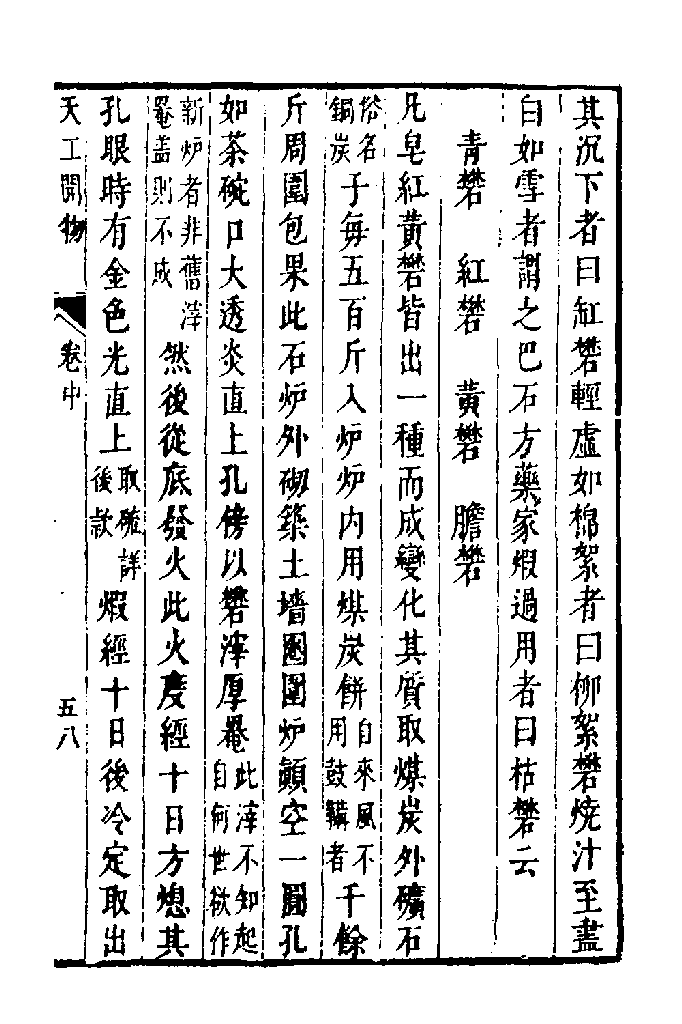 其沉下者曰缸礬輕虛如棉絮者曰柳絮礬燒汁至盡
白如雪者謂之巴石方藥家煆過用者曰枯礬云
青礬　紅礬　黃礬　膽礬
凡皂紅黃礬皆出一種而成變化其質取煤炭外礦石
俗名銅炭子每五百斤入炉炉內用煤炭餅自來風不用鼓鞴者千餘
斤周圍包果此石炉外砌築土墻圈圍炉顛空一圓孔
如茶碗口大透炎直上孔傍以礬滓厚罨此滓不知起自何世欲作
新炉者非舊滓罨盖則不成然後從底發火此火度經十日方熄其
孔眼時有金色光直上取硫詳後款煆經十日後冷定取出
天工開物　卷中　五八